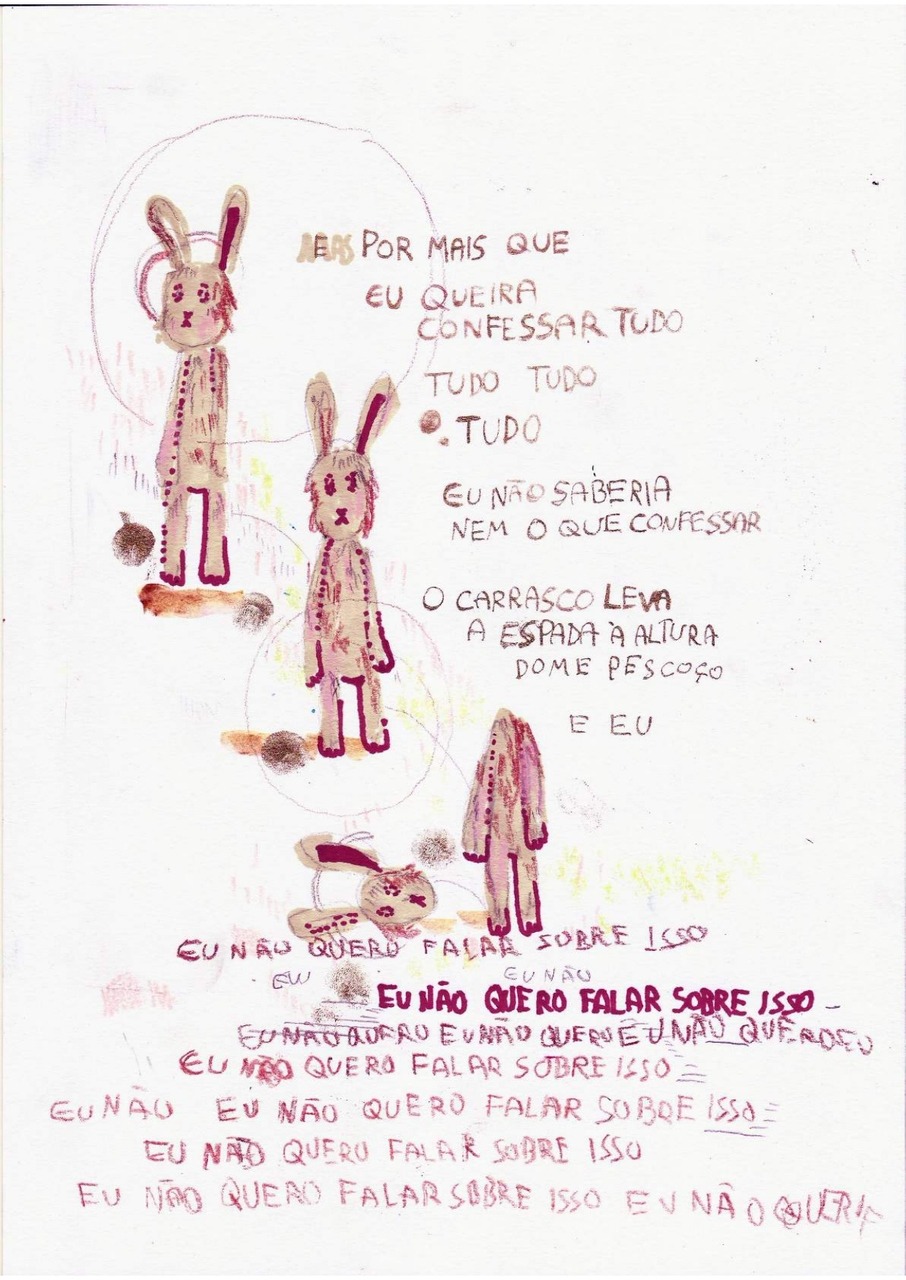 E POR MAIS QUE
EU QUEIRA
CONFESSAR TUDO
TUDO TUDO
TUDO
EU NÃO SABERIA
NEM O QUE CONFESSAR
O CARRASCO LEVA
A ESPADA À ALTURA
DOME PESCOÇO
E EU
EU NÃO QUERO FALAR SOBRE ISSO
EU EU NÃO
EU NÃO QUERO FALAR SOBRE ISSO
EU NÃO QUERO EU NÃO QUERO EU NÃO QUERO EU
EU NÃO QUERO FALAR SOBRE ISSO
EU NÃO EU NÃO QUERO FALAR SOBRE ISSO
EU NÃO QUERO FALAR SOBRE ISSO
EU NÃO QUERO FALAR SOBRE ISSO EU NÃO QUERIA